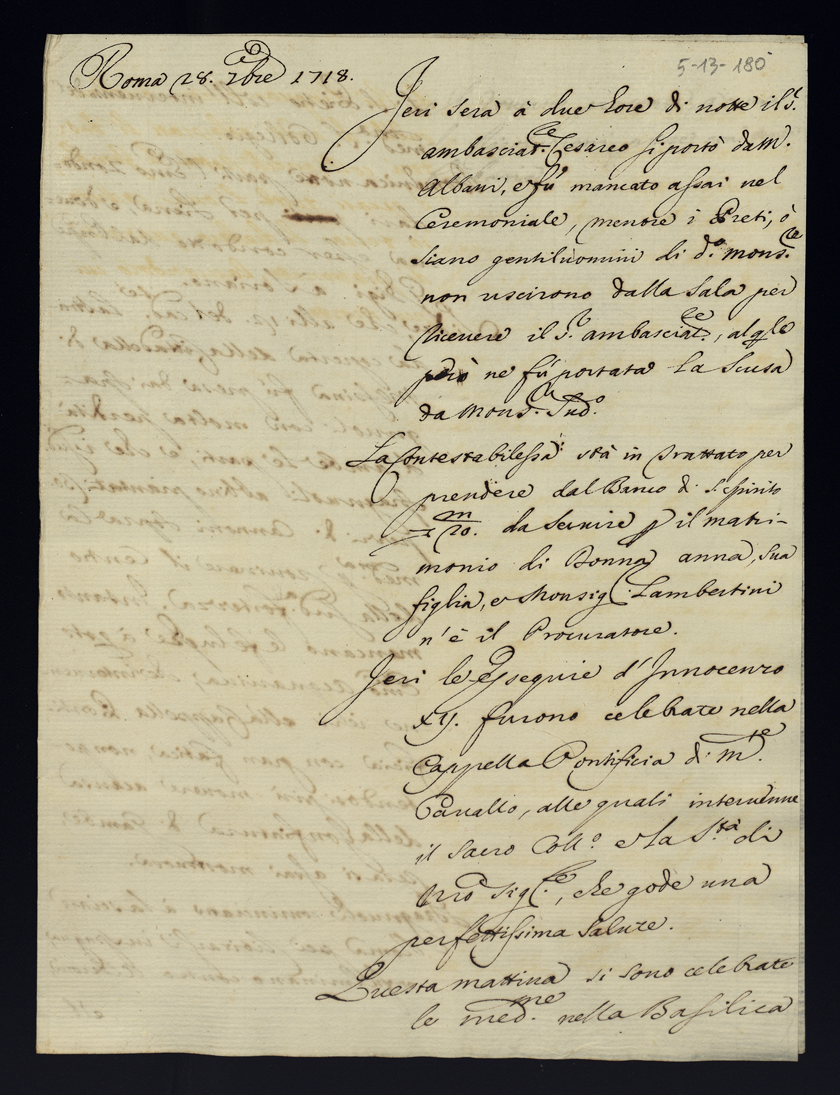 Roma 28. 7bre 1718.
5-13-180
Jeri sera à due hore di notte il s.r
ambasciat.re Cesareo si portò da M.
Albani, e fù mancato assai nel
Ceremoniale, mentre i Preti, ò
siano gentiluomini di d.o mons.re
non uscirono dalla sala per
ricevere il s.r ambasciat.re, al qle
però ne fù portata la scusa
da Mons.r Sud.o
La Contestabilessa stà in trattato per
prendere dal Banco di S. Spirito
m/20. da servire p il matri-
monio di Donna anna, sua
figlia, e Monsig.r Lambertini
n'è il Procuratore.
Jeri le Essequie d'Innocenzo
XII. furono celebrate nella
Cappella Pontificia di m.te
Cavallo, alle quali intervenne
il Sacro Coll.o e la S.tà di
Nro Sig.re, che gode una
perfettissima salute.
Questa mattina si sono celebrate
le med.me nella Basilica